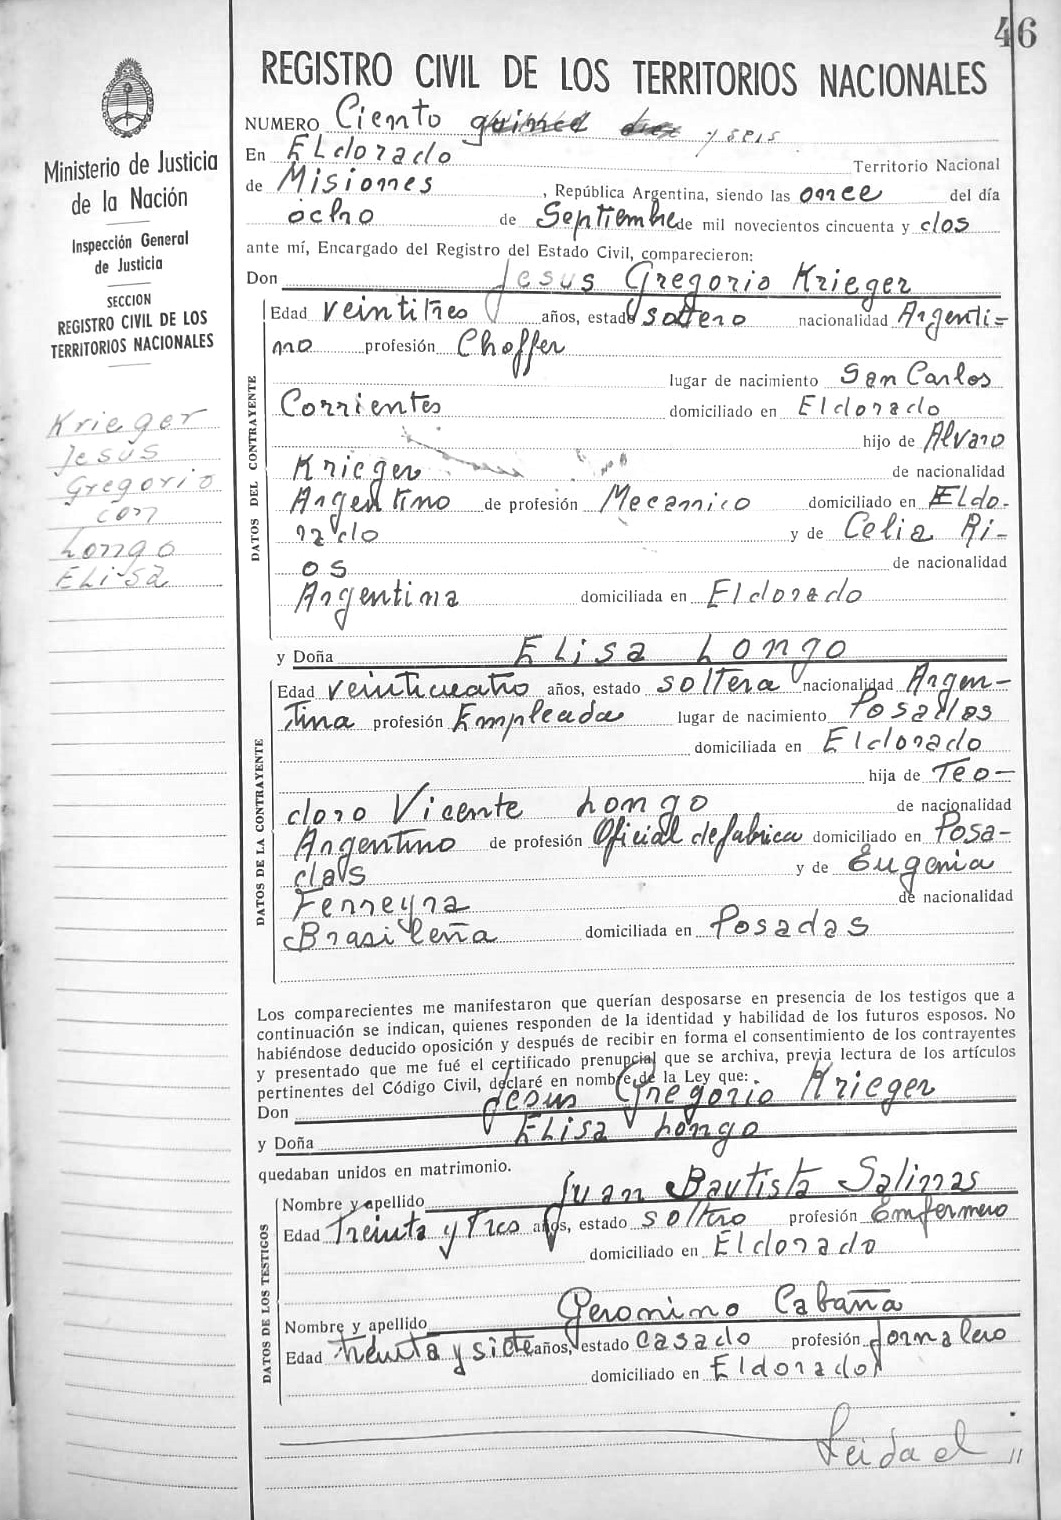 46
REGISTRO CIVIL DE LOS TERRITORIOS NACIONALES
Ministerio de Justicia
de la Nación
Inspección General
de Justicia
SECCION
REGISTRO CIVIL DE LOS
TERRITORIOS NACIONALES
Krieger
Jesús
Gregorio
con
Longo
Elisa
NUMERO Ciento quince diez y seis
En Eldorado Territorio Nacional
de Misiones, República Argentina, siendo las once del día
ocho de Septiembre de mil novecientos cincuenta y dos
ante mí, Encargado del Registro del Estado Civil, comparecieron:
Don Jesus Gregorio Krieger
DATOS DEL CONTRAYENTE
Edad veintitres años, estado soltero nacionalidad Argenti=
no profesión Choffer
lugar de nacimiento San Carlos
Corrientes domiciliado en Eldorado
hijo de Alvaro
Krieger de nacionalidad
Argentino de profesión Mecanico domiciliado en Eldo-
rado y de Celia Ri-
os de nacionalidad
Argentina domiciliada en Eldorado
y Doña Elisa Longo
DATOS DE LA CONTRAYENTE
Edad veinticuatro años, estado soltera nacionalidad Argen-
tina profesión Empleada lugar de nacimiento Posadas
domiciliada en Eldorado
hija de Teo-
doro Vicente Longo de nacionalidad
Argentino de profesión Oficial de fabrica domiciliado en Posa-
das y de Eugenia
Ferreyra de nacionalidad
Brasileña domiciliada en Posadas
Los comparecientes me manifestaron que querían desposarse en presencia de los testigos que a
continuación se indican, quienes responden de la identidad y habilidad de los futuros esposos. No
habiéndose deducido oposición y después de recibir en forma el consentimiento de los contrayentes
y presentado que me fué el certificado prenupcial que se archiva, previa lectura de los artículos
pertinentes del Código Civil, declaré en nombre de la Ley que:
Don Jesus Gregorio Krieger
y Doña Elisa Longo
quedaban unidos en matrimonio.
DATOS DE LOS TESTIGOS
Nombre y apellido Juan Bautista Salinas
Edad treinta y tres años, estado soltero profesión Enfermero
domiciliado en Eldorado
Nombre y apellido Geronimo Cabaña
Edad treinta y siete años, estado casado profesión Jornalero
domiciliado en Eldorado
Leida el //